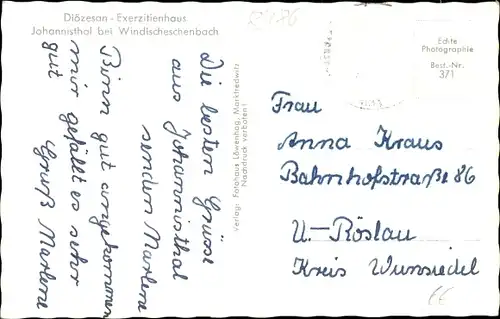 Diözesan - Exerzitienhaus
Johannisthal bei Windischeschenbach
Echte
Photographie
Best.-Nr.
371
Die besten Grüsse
aus Johannisthal
senden Marlene
Binn gut angekommen
mir gefällt es sehr
gut
Gruß Marlene
Verlag: Fotohaus Löwenhag, Marktredwitz
Nachdruck verboten!
Frau
Anna Kraus
Bahnhofstraße 86
U.-Röslau
Kreis Wunsiedel